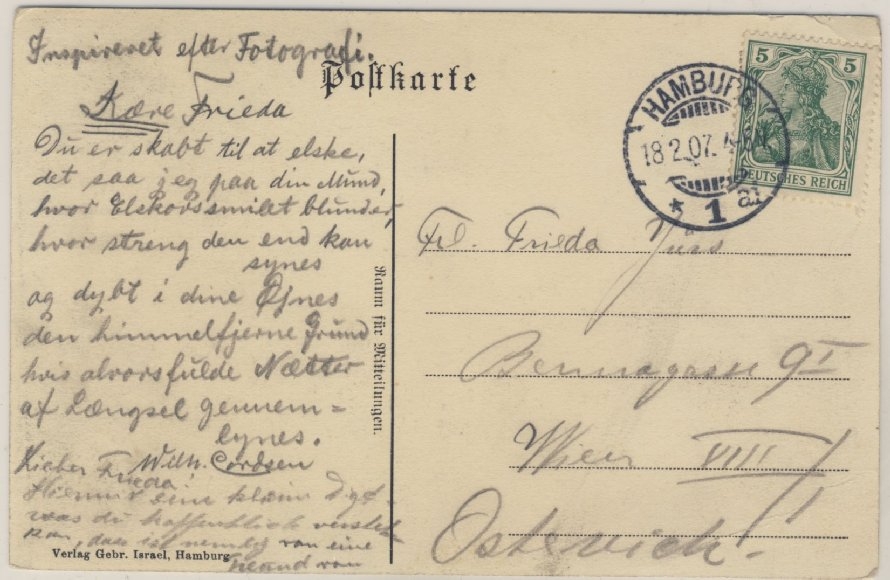 Inspireret efter Fotografi.
Postkarte
Kære Frieda
Du er skabt til at elske,
det saa jeg paa din Mund,
hvor Elskovssmilet blunder,
hvor streng den end kan
synes
og dybt i dine Øjnes
den himmelfjerne Grund
hvis alvorsfulde Nætter
af Længsel gennem=
lynes.
Wilh. Cordsen
Lieber Frieda!
Hiermit eine klein
was du hoffentlich verstehn
kan, das ist nemlig von eine
Freund von
Verlag Gebr. Israel, Hamburg
Raum für Mitteilungen.
HAMBURG
18.2.07.
* 1 a
5 5
DEUTSCHES REICH
Frl. Frieda
Bennogasse 9 I
Wien VIII
Österreich!